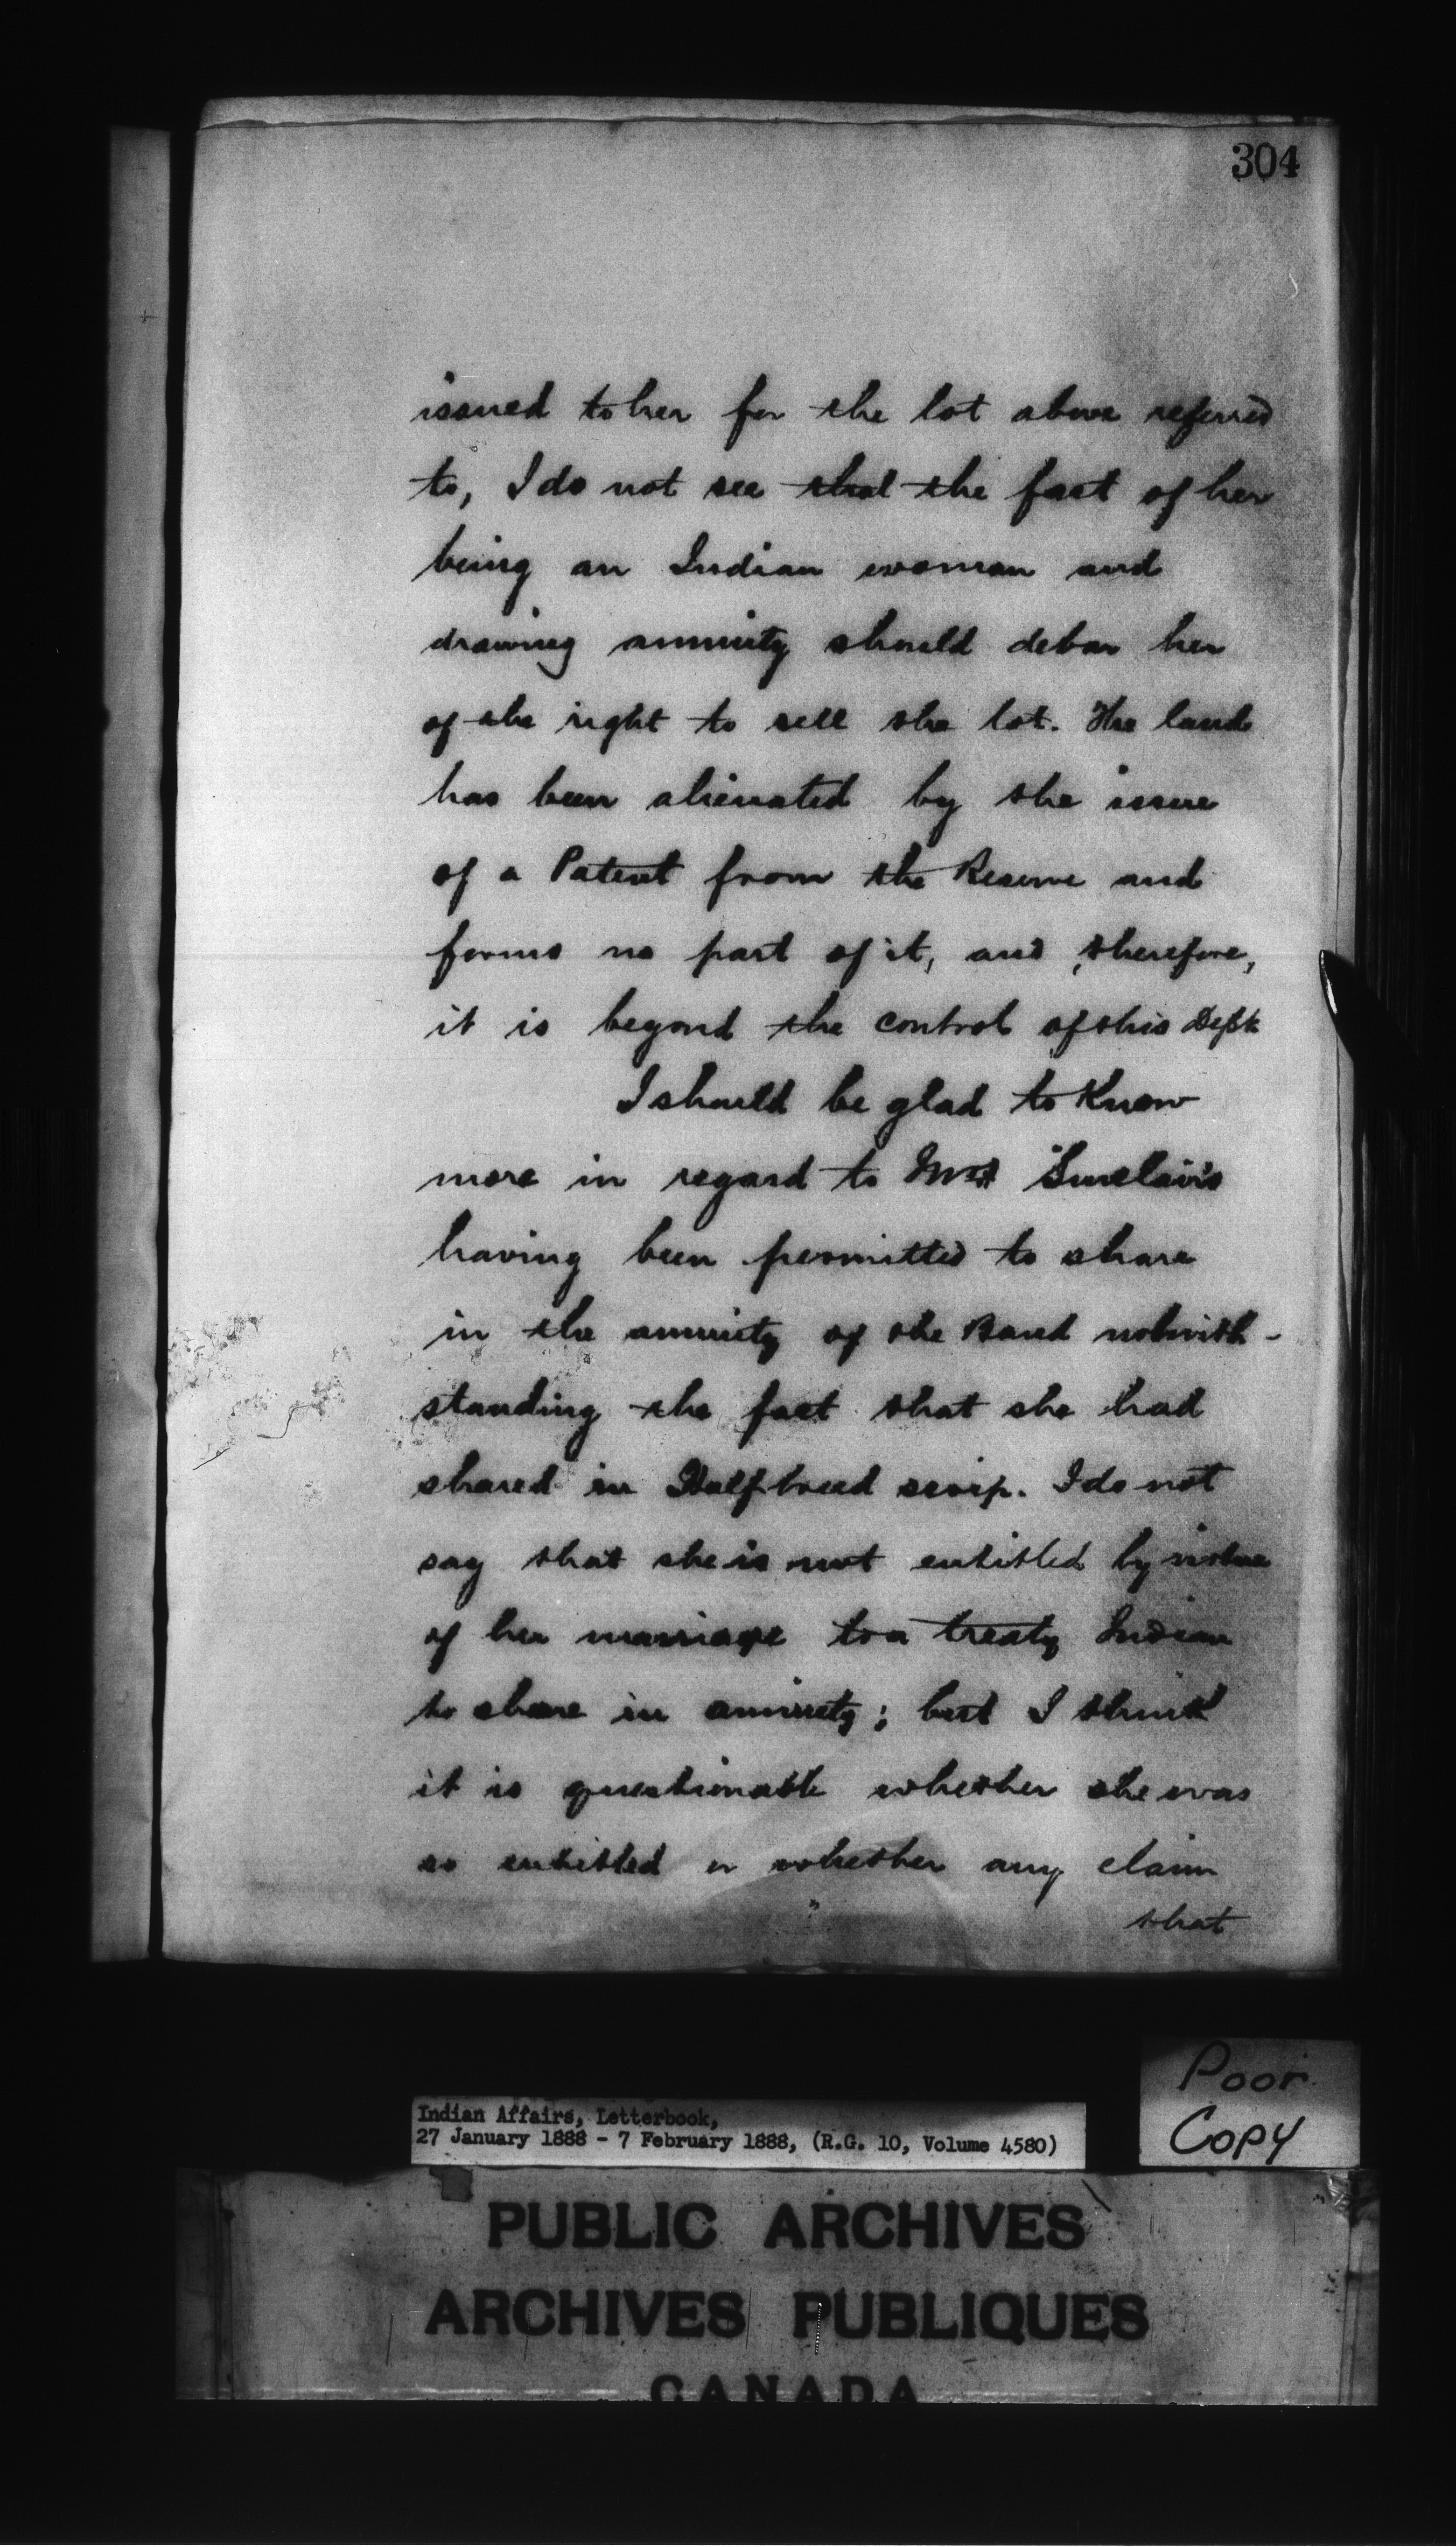 304
issued to her for the lot above referred
to, I do not see that the fact of her
being an Indian woman and
drawing annuity should debar her
of the right to sell the lot. The land
has been alienated by the issue
of a Patent from the Reserve and
forms no part of it, and, therefore,
it is beyond the control of this Dept
I should be glad to Know
more in regard to Mrs Sinclair's
having been permitted to share
in the annuity of the Band notwith-
standing the fact that she had
shared in Halfbreed scrip. I do not
say that she is not entitled by virtue
of her marriage to a treaty Indian
to share in annuity; but I think
it is questionable whether she was
so entitled or whether any claim
that
Poor
Copy
Indian Affairs, Letterbook,
27 January 1888 - 7 February 1888, (R.G. 10, Volume 4580)
PUBLIC ARCHIVES
ARCHIVES PUBLIQUES
CANADA